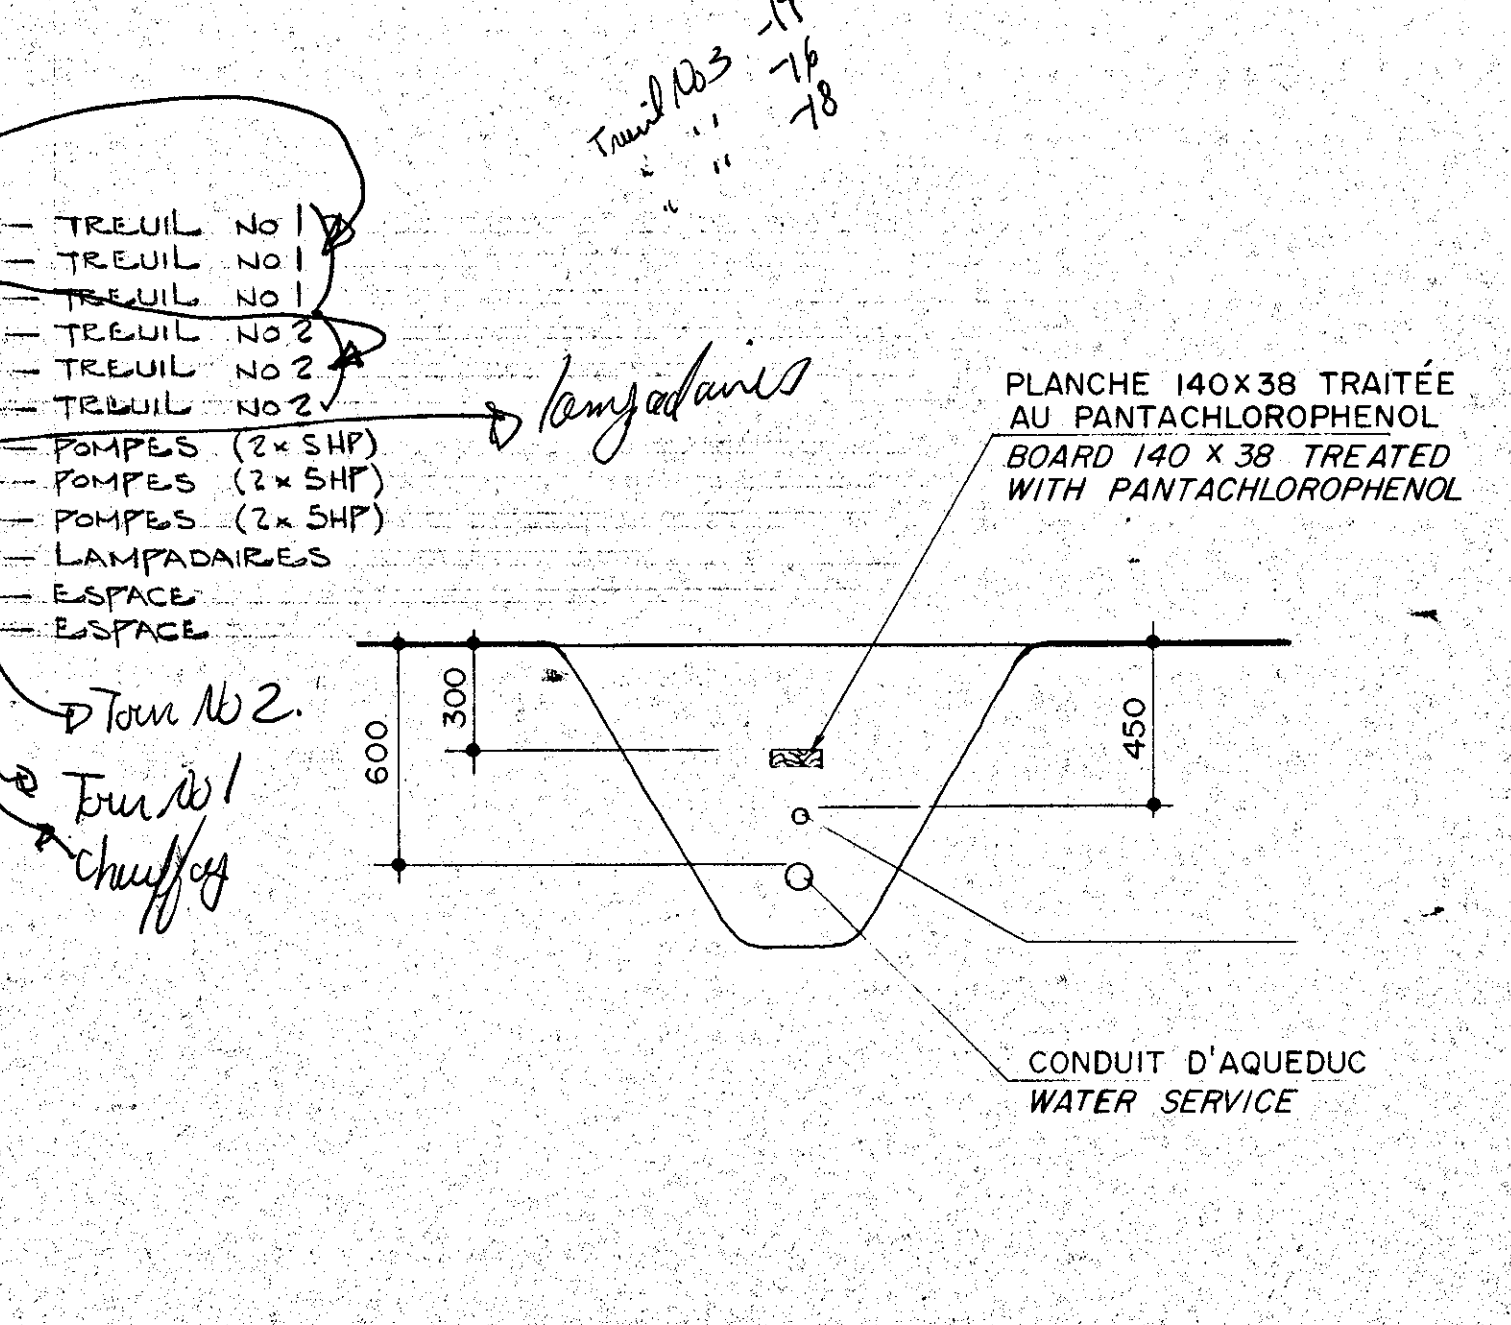 -17
Treuil No3 -16
" " -18
" "
"
— TREUIL NO 1
— TREUIL NO 1
— TREUIL NO 1
— TREUIL NO 2
— TREUIL NO 2
— TREUIL NO 2
— POMPES (2x5HP)
— POMPES (2x5HP)
— POMPES (2x5HP)
— LAMPADAIRES
— ESPACE
— ESPACE
lampadaires
Tour No 2.
Tour No 1
chauffag
PLANCHE 140X38 TRAITÉE
AU PANTACHLOROPHENOL
BOARD 140 X 38 TREATED
WITH PANTACHLOROPHENOL
600
300
450
CONDUIT D'AQUEDUC
WATER SERVICE